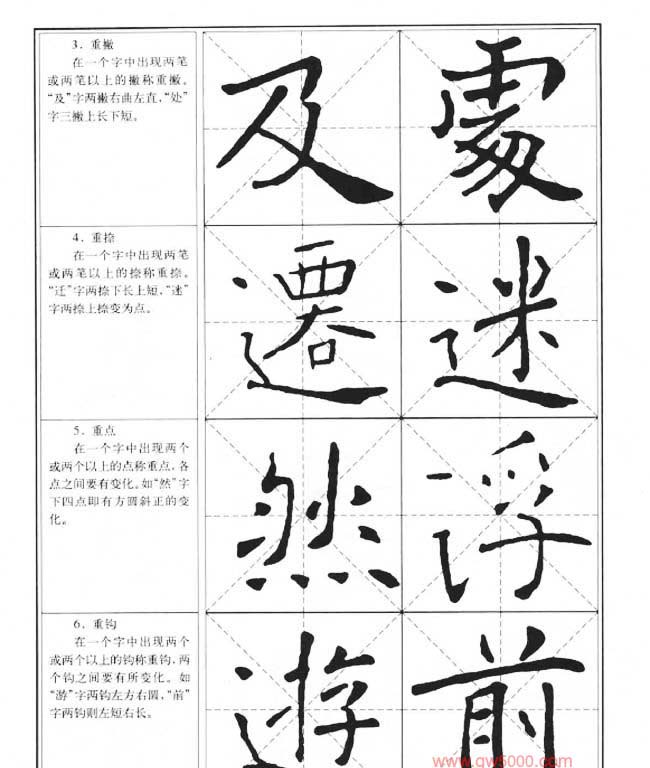 3．重撇
在一个字中出现两笔
或两笔以上的撇称重撇。
“及”字两撇右曲左直，“处”
字三撇上长下短。
及 處
4．重捺
在一个字中出现两笔
或两笔以上的捺称重捺。
“迁”字两捺下长上短，“迷”
字两捺上捺变为点。
遷 迷
5．重点
在一个字中出现两个
或两个以上的点称重点，各
点之间要有变化。如“然”字
下四点即有方圆斜正的变
化。
然 浮
6．重钩
在一个字中出现两个
或两个以上的钩称重钩，两
个钩之间要有所变化。如
“游”字两钩左方右圆，“前”
字两钩则左短右长。
遊 前
www.gw5000.com